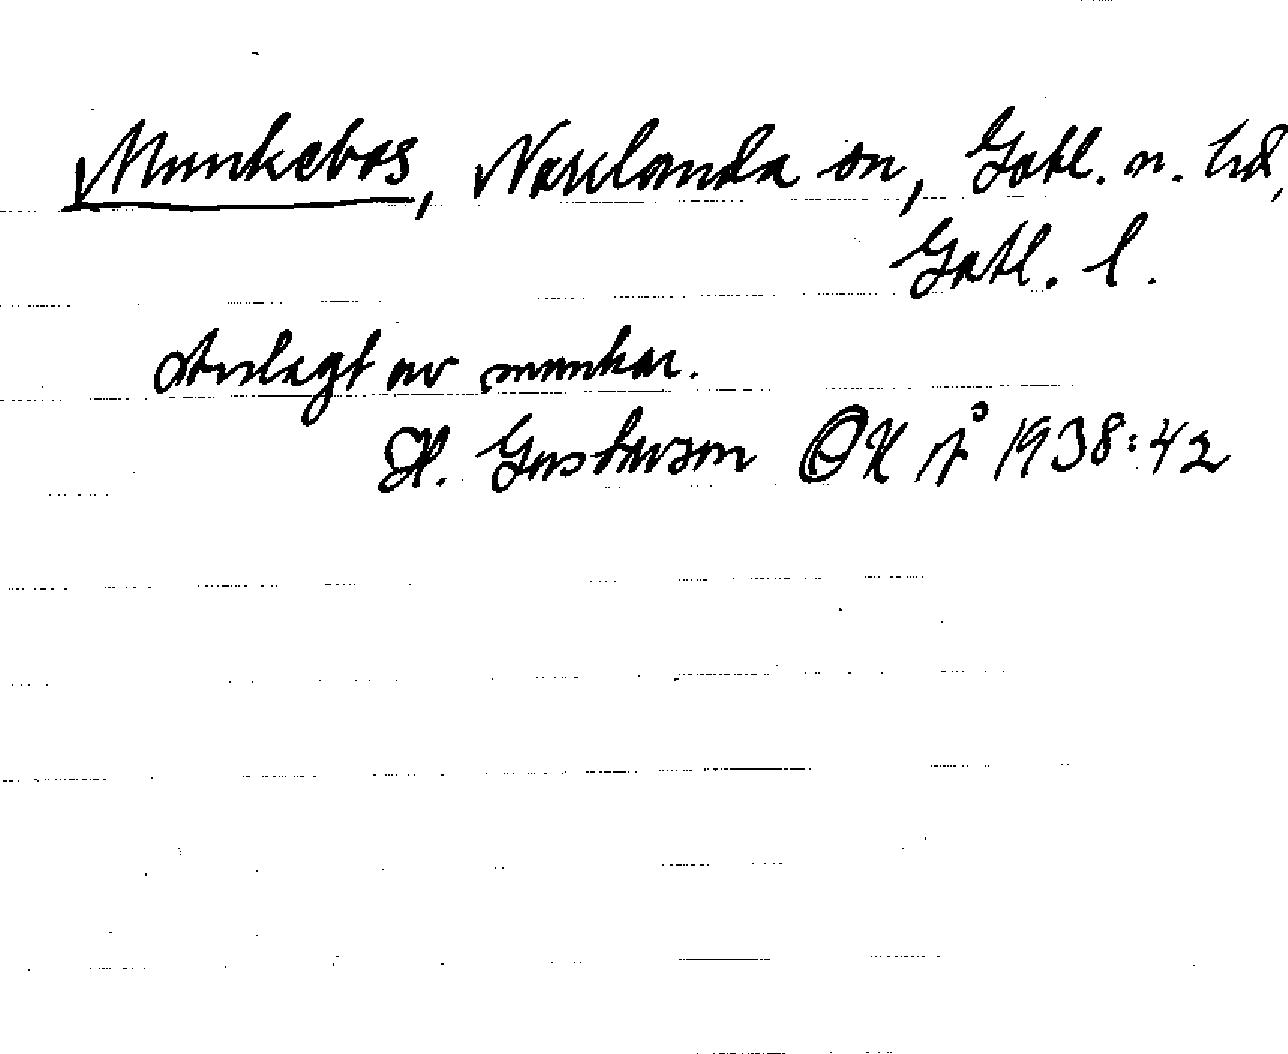 Munkebos, Norrlanda sn, Gotl. n. hd,
Gotl. l.
Anlagt av munkar.
H. Gustavson OK Å 1938:42